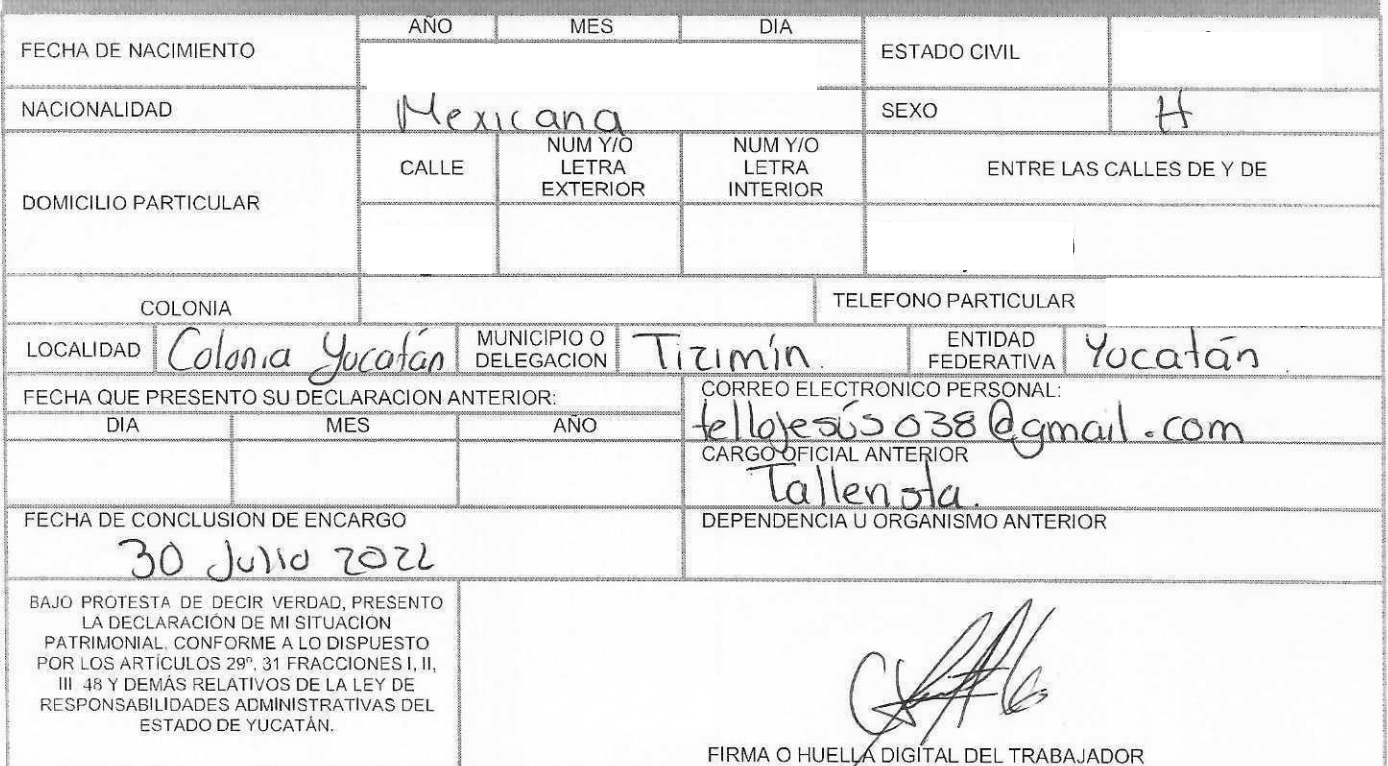 AÑO MES DIA
FECHA DE NACIMIENTO ESTADO CIVIL
NACIONALIDAD Mexicana SEXO H
DOMICILIO PARTICULAR CALLE NUM Y/O LETRA EXTERIOR NUM Y/O LETRA INTERIOR ENTRE LAS CALLES DE Y DE
COLONIA TELEFONO PARTICULAR
LOCALIDAD Colonia Yucatán MUNICIPIO O DELEGACION Tizimín. ENTIDAD FEDERATIVA Yucatán.
FECHA QUE PRESENTO SU DECLARACION ANTERIOR:
DIA MES AÑO
CORREO ELECTRONICO PERSONAL:
tellojesús038@gmail.com
CARGO OFICIAL ANTERIOR
Tallerista.
FECHA DE CONCLUSION DE ENCARGO
30 Julio 2022
DEPENDENCIA U ORGANISMO ANTERIOR
BAJO PROTESTA DE DECIR VERDAD, PRESENTO
LA DECLARACIÓN DE MI SITUACION
PATRIMONIAL. CONFORME A LO DISPUESTO
POR LOS ARTÍCULOS 29º, 31 FRACCIONES I, II,
III 48 Y DEMÁS RELATIVOS DE LA LEY DE
RESPONSABILIDADES ADMINISTRATIVAS DEL
ESTADO DE YUCATÁN.
FIRMA O HUELLA DIGITAL DEL TRABAJADOR